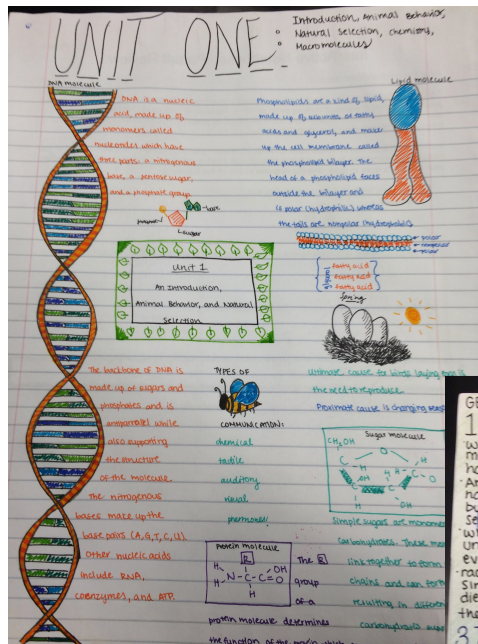 UNIT ONE:
Introduction, Animal Behavior,
Natural Selection, chemistry,
Macromolecules
DNA molecule
DNA is a nucleic
acid, made up of
monomers called
nucleotides which have
three parts: a nitrogenous
base, a pentose sugar,
and a phosphate group
base
sugar
Lipid molecule
Phospholipids are a kind of lipid,
made up of subunits of fatty
acids and glycerol, and make
up the cell membrane called
the phospholipid bilayer. The
head of a phospholipid faces
outside the bilayer and
is polar (hydrophilic) whereas
the tails are nonpolar (hydrophobic)
polar
nonpolar
polar
fatty acid
fatty acid
fatty acid
Unit 1
An Introduction,
Animal Behavior, and Natural
Selection
Spring
The backbone of DNA is
made up of sugars and
phosphates and is
antiparallel while
also supporting
the structure
of the molecule.
The nitrogenous
bases make up the
base pairs (A,G,T,C,U).
Other nucleic acids
include RNA,
coenzymes, and ATP.
TYPES OF
COMMUNICATION:
chemical
tactile
auditory
visual
Ultimate cause for birds laying eggs is
the need to reproduce
Proximate cause is changing
Sugar molecule
CH2OH
C
O
H
H
C
OH
H
C
O
C
H
Simple sugars are
carbohydrates. These
link together to form
chains and can form
resulting in
carbohydrate
Protein molecule
R
H
H
N-C-C=O
OH
H
The R
group
of a
protein molecule determines
the function of the